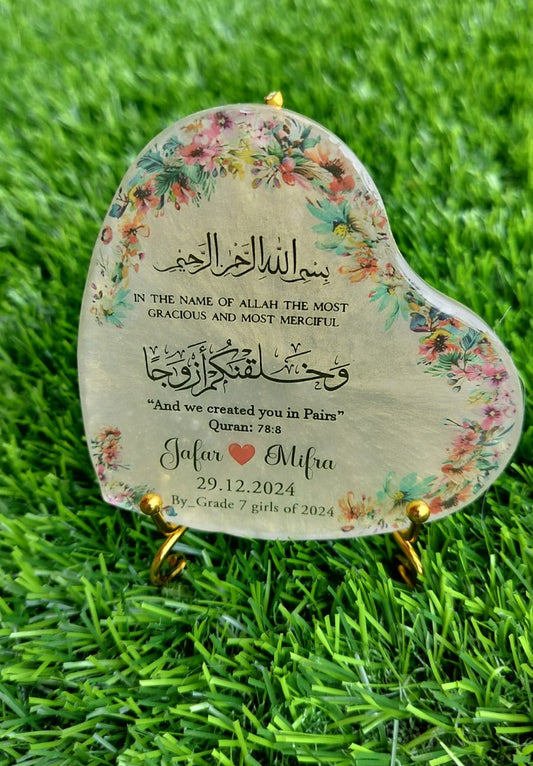 بسم الله الرحمن الرحيم
IN THE NAME OF ALLAH THE MOST
GRACIOUS AND MOST MERCIFUL
وَخَلَقْنَٰكُمْ أَزْوَٰجًا
“And we created you in Pairs”
Quran: 78:8
Jafar ❤ Mifra
29.12.2024
By_Grade 7 girls of 2024